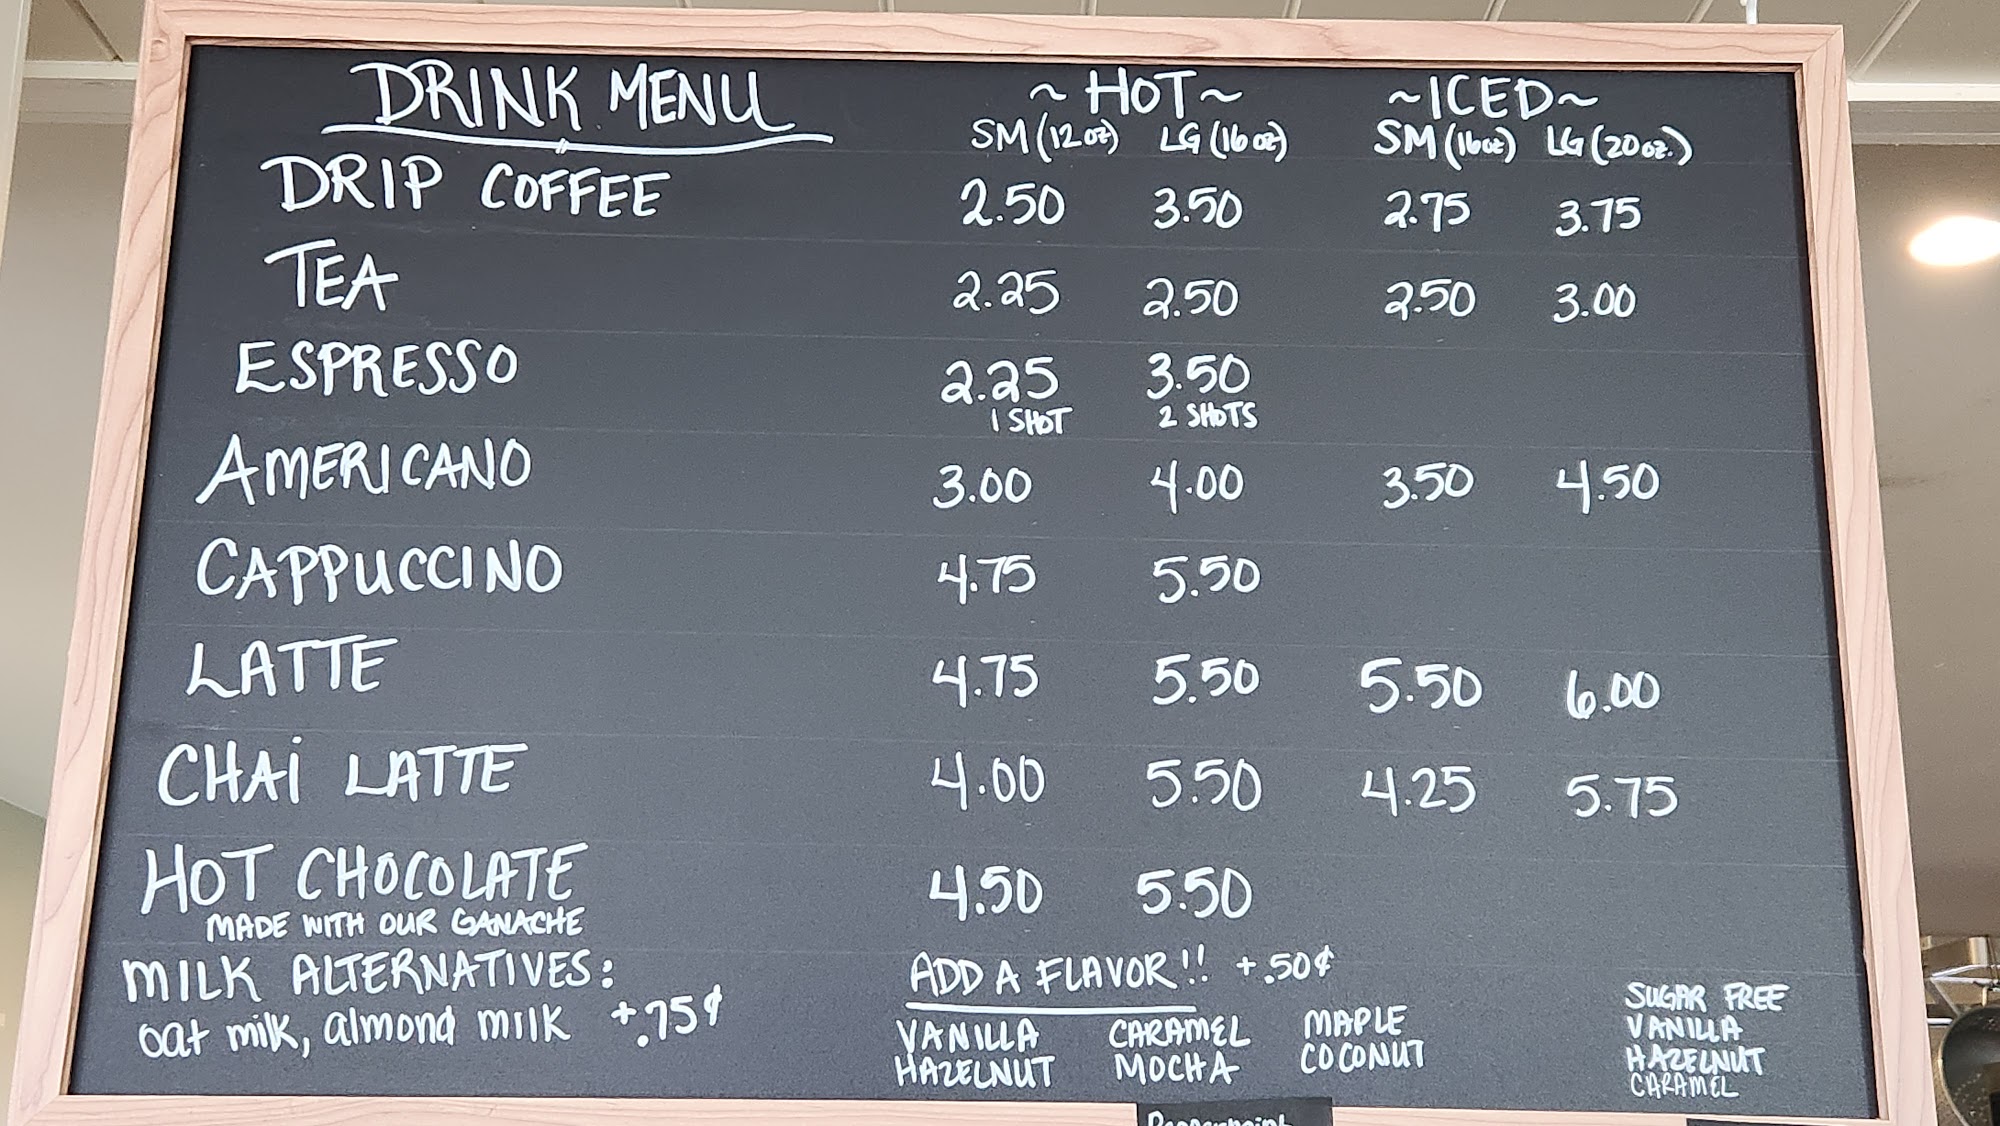 DRINK MENU ~HOT~ ~ICED~
SM (12oz) LG (16oz) SM (16oz) LG (20oz.)
DRIP COFFEE 2.50 3.50 2.75 3.75
TEA 2.25 2.50 2.50 3.00
ESPRESSO 2.25 3.50
1 SHOT 2 SHOTS
AMERICANO 3.00 4.00 3.50 4.50
CAPPUCCINO 4.75 5.50
LATTE 4.75 5.50 5.50 6.00
CHAi LATTE 4.00 5.50 4.25 5.75
HOT CHOCOLATE 4.50 5.50
MADE WITH OUR GANACHE
MILK ALTERNATIVES:
oat milk, almond milk +.75¢
ADD A FLAVOR!! +.50¢
VANILLA CARAMEL MAPLE
HAZELNUT MOCHA COCONUT
SUGAR FREE
VANILLA
HAZELNUT
CARAMEL